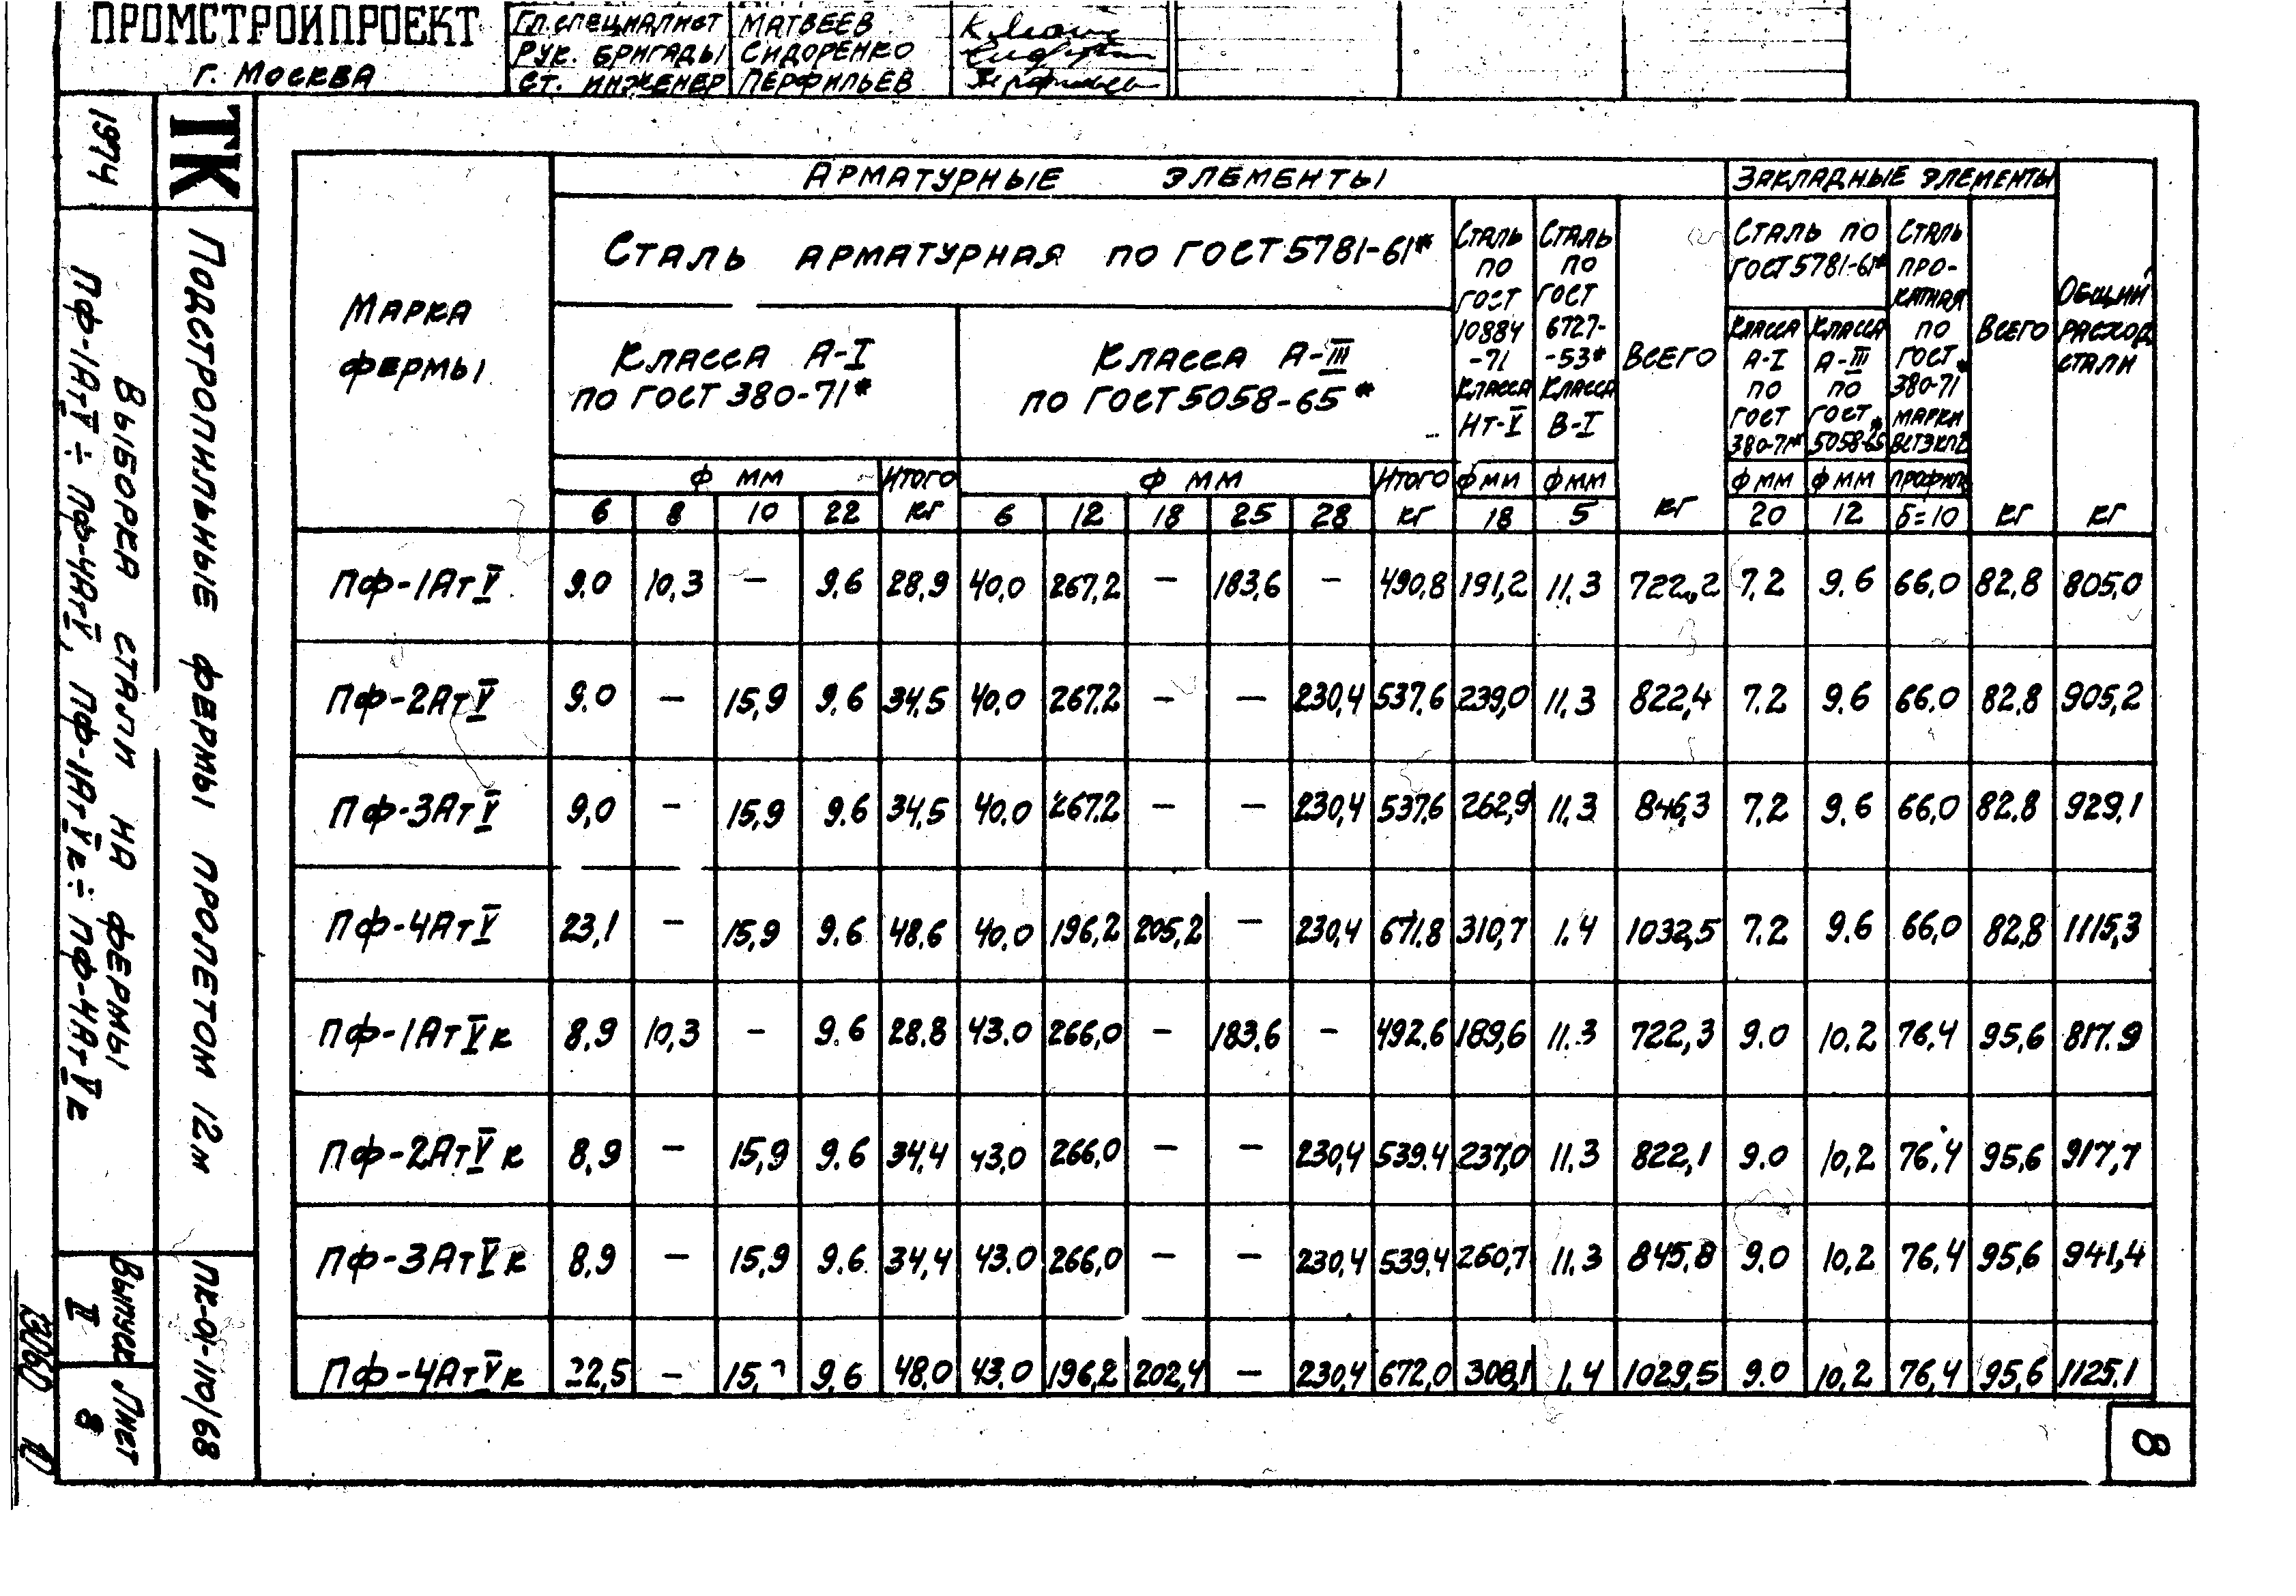 ПРОМСТРОЙПРОЕКТ
г. Москва
Гл. специалист Матвеев
Рук. бригады Сидоренко
Ст. инженер Перфильев
ТК
1974
Подстропильные фермы пролетом 12м
Выборка стали на фермы
ПФ-1АтV ÷ ПФ-4АтV, ПФ-1АтVк ÷ ПФ-4АтVк
ПК-01-110/68
Выпуск II
Лист 8
13060 10
Марка фермы
Арматурные элементы
Закладные элементы
Общий расход стали кг
Сталь арматурная по ГОСТ 5781-61*
Класса А-I по ГОСТ 380-71*
Класса А-III по ГОСТ 5058-65*
Сталь по ГОСТ 10884-71 класса
Сталь по ГОСТ 6727-53* класса В-I
Всего кг
Сталь по ГОСТ 5781-61*
Класса А-I по ГОСТ 380-71*
Класса А-III по ГОСТ 5058-65*
Сталь прокатная по ГОСТ 380-71* марки
Всего кг
ф мм Итого кг ф мм Итого кг ф мм ф мм ф мм ф мм профиль
6 8 10 22 6 12 18 25 28 18 5 20 12 δ=10
ПФ-1АтV 9.0 10,3 — 9.6 28,9 40,0 267,2 — 183,6 — 490,8 191,2 11.3 722,2 7.2 9.6 66,0 82,8 805,0
ПФ-2АтV 9.0 — 15,9 9.6 34,5 40.0 267.2 — — 230,4 537.6 239,0 11.3 822,4 7.2 9.6 66.0 82.8 905,2
ПФ-3АтV 9,0 — 15,9 9.6 34,5 40.0 267.2 — — 230,4 537,6 262,9 11.3 846,3 7,2 9,6 66,0 82.8 929,1
ПФ-4АтV 23,1 — 15,9 9.6 48,6 40.0 196,2 205,2 — 230,4 671.8 310,7 1.4 1032,5 7.2 9.6 66,0 82,8 1115,3
ПФ-1АтVк 8,9 10,3 — 9.6 28.8 43.0 266,0 — 183,6 — 492.6 189,6 11.3 722,3 9.0 10.2 76,4 95,6 817.9
ПФ-2АтVк 8,9 — 15,9 9.6 34,4 43,0 266,0 — — 230,4 539.4 237,0 11.3 822,1 9.0 10,2 76,4 95,6 917,7
ПФ-3АтVк 8,9 — 15,9 9.6 34,4 43.0 266,0 — — 230,4 539.4 260,7 11.3 845,8 9.0 10,2 76,4 95,6 941,4
ПФ-4АтVк 22,5 — 9.6 48,0 43.0 196,2 202,4 — 230,4 672,0 308,1 1.4 1029,5 9.0 10.2 76,4 95,6 1125.1
8